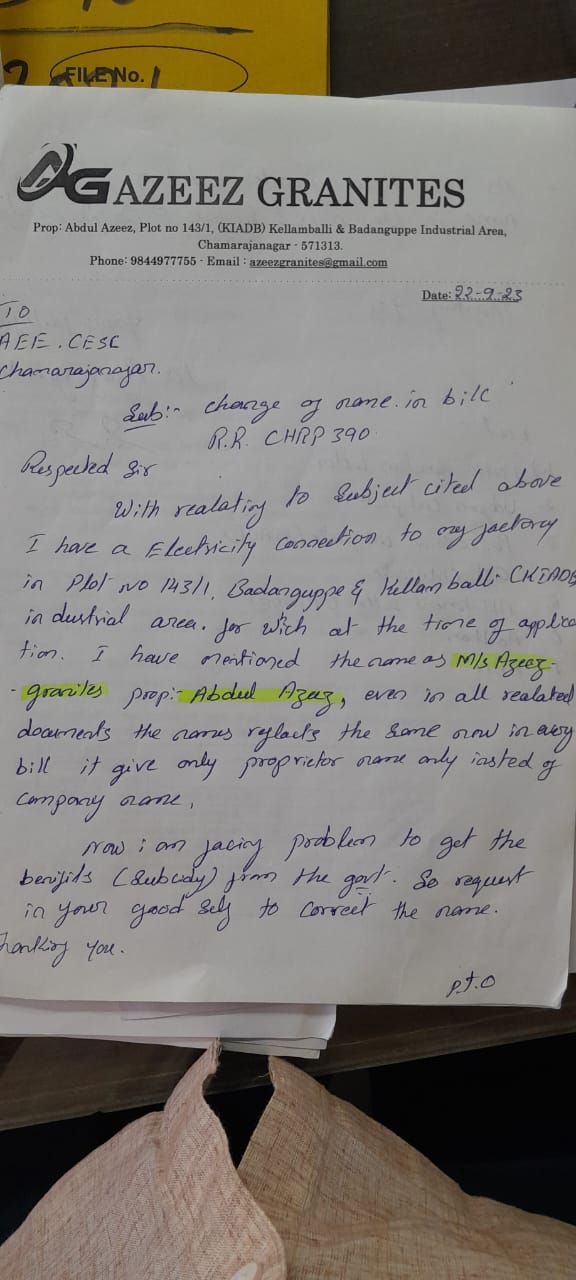 FILE No.
AG AZEEZ GRANITES
Prop: Abdul Azeez, Plot no 143/1, (KIADB) Kellamballi & Badanguppe Industrial Area,
Chamarajanagar - 571313.
Phone: 9844977755 - Email : azeezgranites@gmail.com
Date: 22-9-23
TO
AEE. CESC
Chamarajanagar.
Sub:- change of name in bill
R.R. CHRP 390
Respected Sir
With realating to Subject cited above
I have a Electricity connection to my factory
in Plot NO 143/1, Badanguppe & Kellamballi (KIADB
industrial area. for wich at the time of applica
tion. I have mentioned the name as M/s Azeez-
-granites prop:- Abdul Azeez, even in all realated
documents the names reflects the same now in every
bill it give only proprietor name only insted of
Company name,
Now i am facing problem to get the
benifits (Subcidy) from the govt. So request
in your good self to correct the name.
Thanking you.
P.T.O